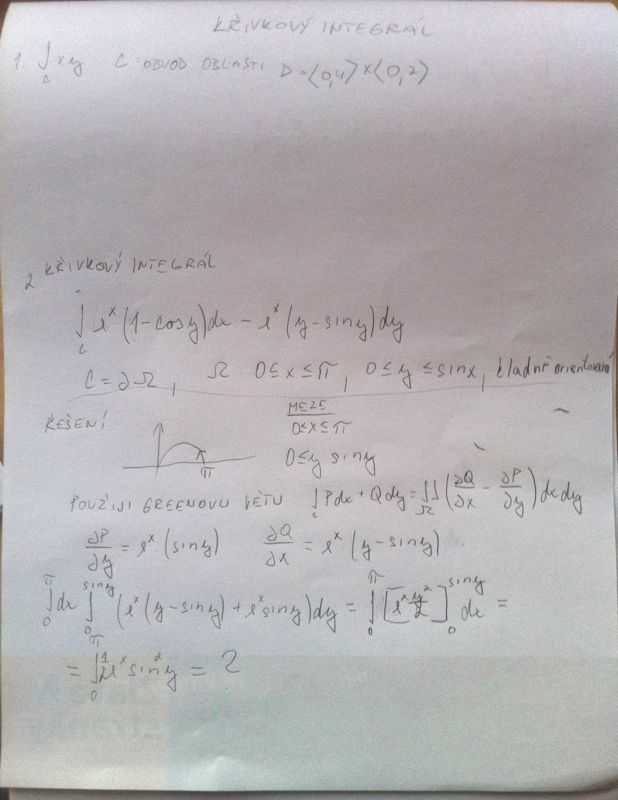 KŘIVKOVÝ INTEGRÁL
1. ∫_C xy C: OBVOD OBLASTI D=⟨0,4⟩×⟨0,2⟩
2 KŘIVKOVÝ INTEGRÁL
∫_C e^x (1-cos y)dx - e^x (y-sin y)dy
C=∂Ω, Ω 0≤x≤π, 0≤y≤sinx, kladně orientovaná
ŘEŠENÍ
MEZE
0≤x≤π
0≤y sin y
π
POUŽIJI GREENOVU VĚTU ∫_C Pdx+Qdy=∬_Ω (∂Q/∂x - ∂P/∂y) dxdy
∂P/∂y = e^x (sin y) ∂Q/∂x = e^x (y-sin y)
∫_0^π dx ∫_0^{sin y} (e^x (y-sin y)+e^x sin y)dy = ∫_0^π [e^x y^2/2]_0^{sin y} dx =
= ∫_0^π 1/2 e^x sin^2 y = 2